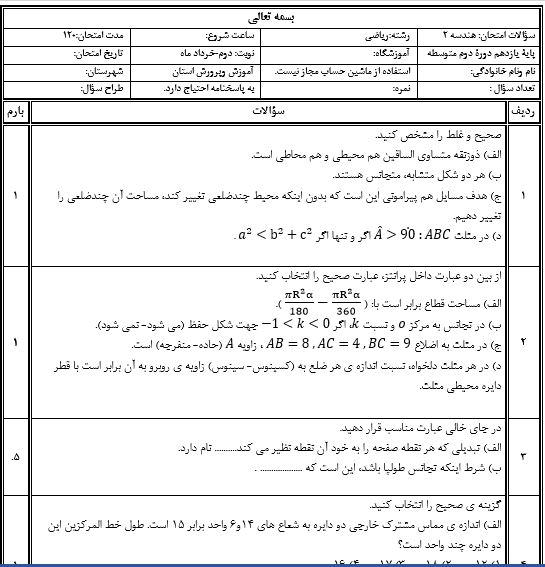 بسمه تعالی
سؤالات امتحان: هندسه ۲ رشته:ریاضی ساعت شروع: مدت امتحان:۱۲۰
پایهٔ یازدهم دورهٔ دوم متوسطه آموزشگاه: نوبت: دوم-خرداد ماه تاریخ امتحان:
نام ونام خانوادگی: استفاده از ماشین حساب مجاز نیست. آموزش وپرورش استان شهرستان:
تعداد سؤال : نمره: به پاسخنامه احتیاج دارد. طراح سؤال:
ردیف سؤالات بارم
صحیح و غلط را مشخص کنید.
الف) ذوزنقه متساوی الساقین هم محیطی و هم محاطی است.
ب) هر دو شکل متشابه، متجانس هستند.
۱ ج) هدف مسایل هم پیراموتی این است که بدون اینکه محیط چندضلعی تغییر کند، مساحت آن چندضلعی را ۱
تغییر دهیم.
د) در مثلث ABC : Â > 90 اگر و تنها اگر a² < b² + c² .
از بین دو عبارت داخل پرانتز، عبارت صحیح را انتخاب کنید.
الف) مساحت قطاع برابر است با: ( πR²α/180 − πR²α/360 ).
ب) در تجانس به مرکز o و نسبت k، اگر −1 < k < 0 جهت شکل حفظ (می شود- نمی شود).
۲ ج) در مثلث به اضلاع AB = 8 , AC = 4 , BC = 9 ، زاویه A (حاده- منفرجه) است. ۱
د) در هر مثلث دلخواه، نسبت اندازه ی هر ضلع به (کسینوس- سینوس) زاویه ی روبرو به آن برابر است با قطر
دایره محیطی مثلث.
در جای خالی عبارت مناسب قرار دهید.
۳ الف) تبدیلی که هر نقطه صفحه را به خود آن نقطه نظیر می کند........... نام دارد. .۵
ب) شرط اینکه تجانس طولپا باشد، این است که .................... .
گزینه ی صحیح را انتخاب کنید.
الف) اندازه ی مماس مشترک خارجی دو دایره به شعاع های ۱۴و۶ واحد برابر ۱۵ است. طول خط المرکزین این
دو دایره چند واحد است؟